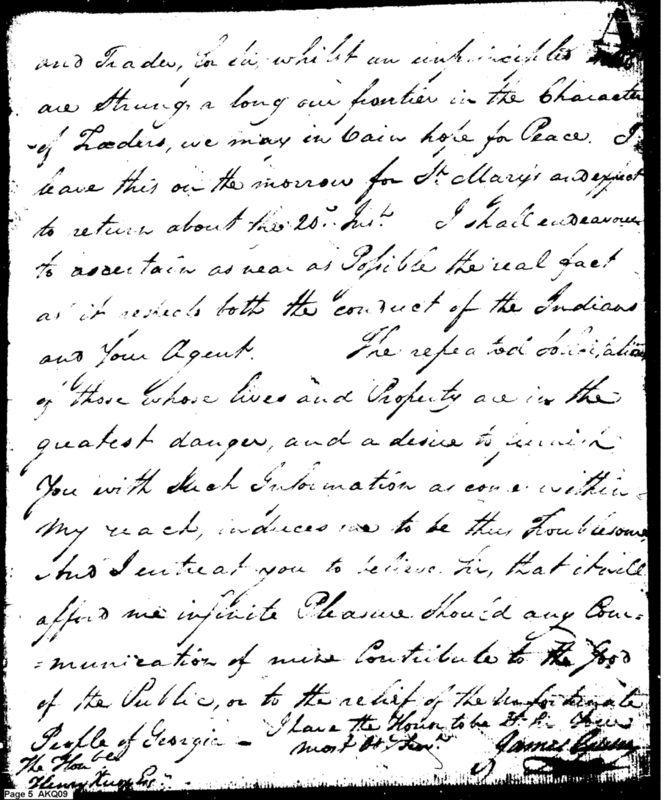 and Trader, for Sir, whilst an unprincipled
are Strung a long our frontier in the Character
of Traders, we may in Vain hope for Peace. I
leave this on the morrow for St. Mary's and expect
to return about the 20th Inst. I shall endeavour
to ascertain as near as Possible the real fact
as it respects both the conduct of the Indians
and Your Agent. The repeated Solicitations
of those whose lives and Property are in the
greatest danger, and a desire to furnish
You with Such Information as come within
My reach, induces me to be thus Troublesome
And I entreat you to believe Sir, that it will
afford me infinite Pleasure should any Com=
=munication of mine Contribute to the Good
of the Public, or to the relief of the unfortunate
People of Georgia - I have the Honor to be
most Obt Servt. James
The Honble
Henry Knox Esqr.
Page 5 AKQ09